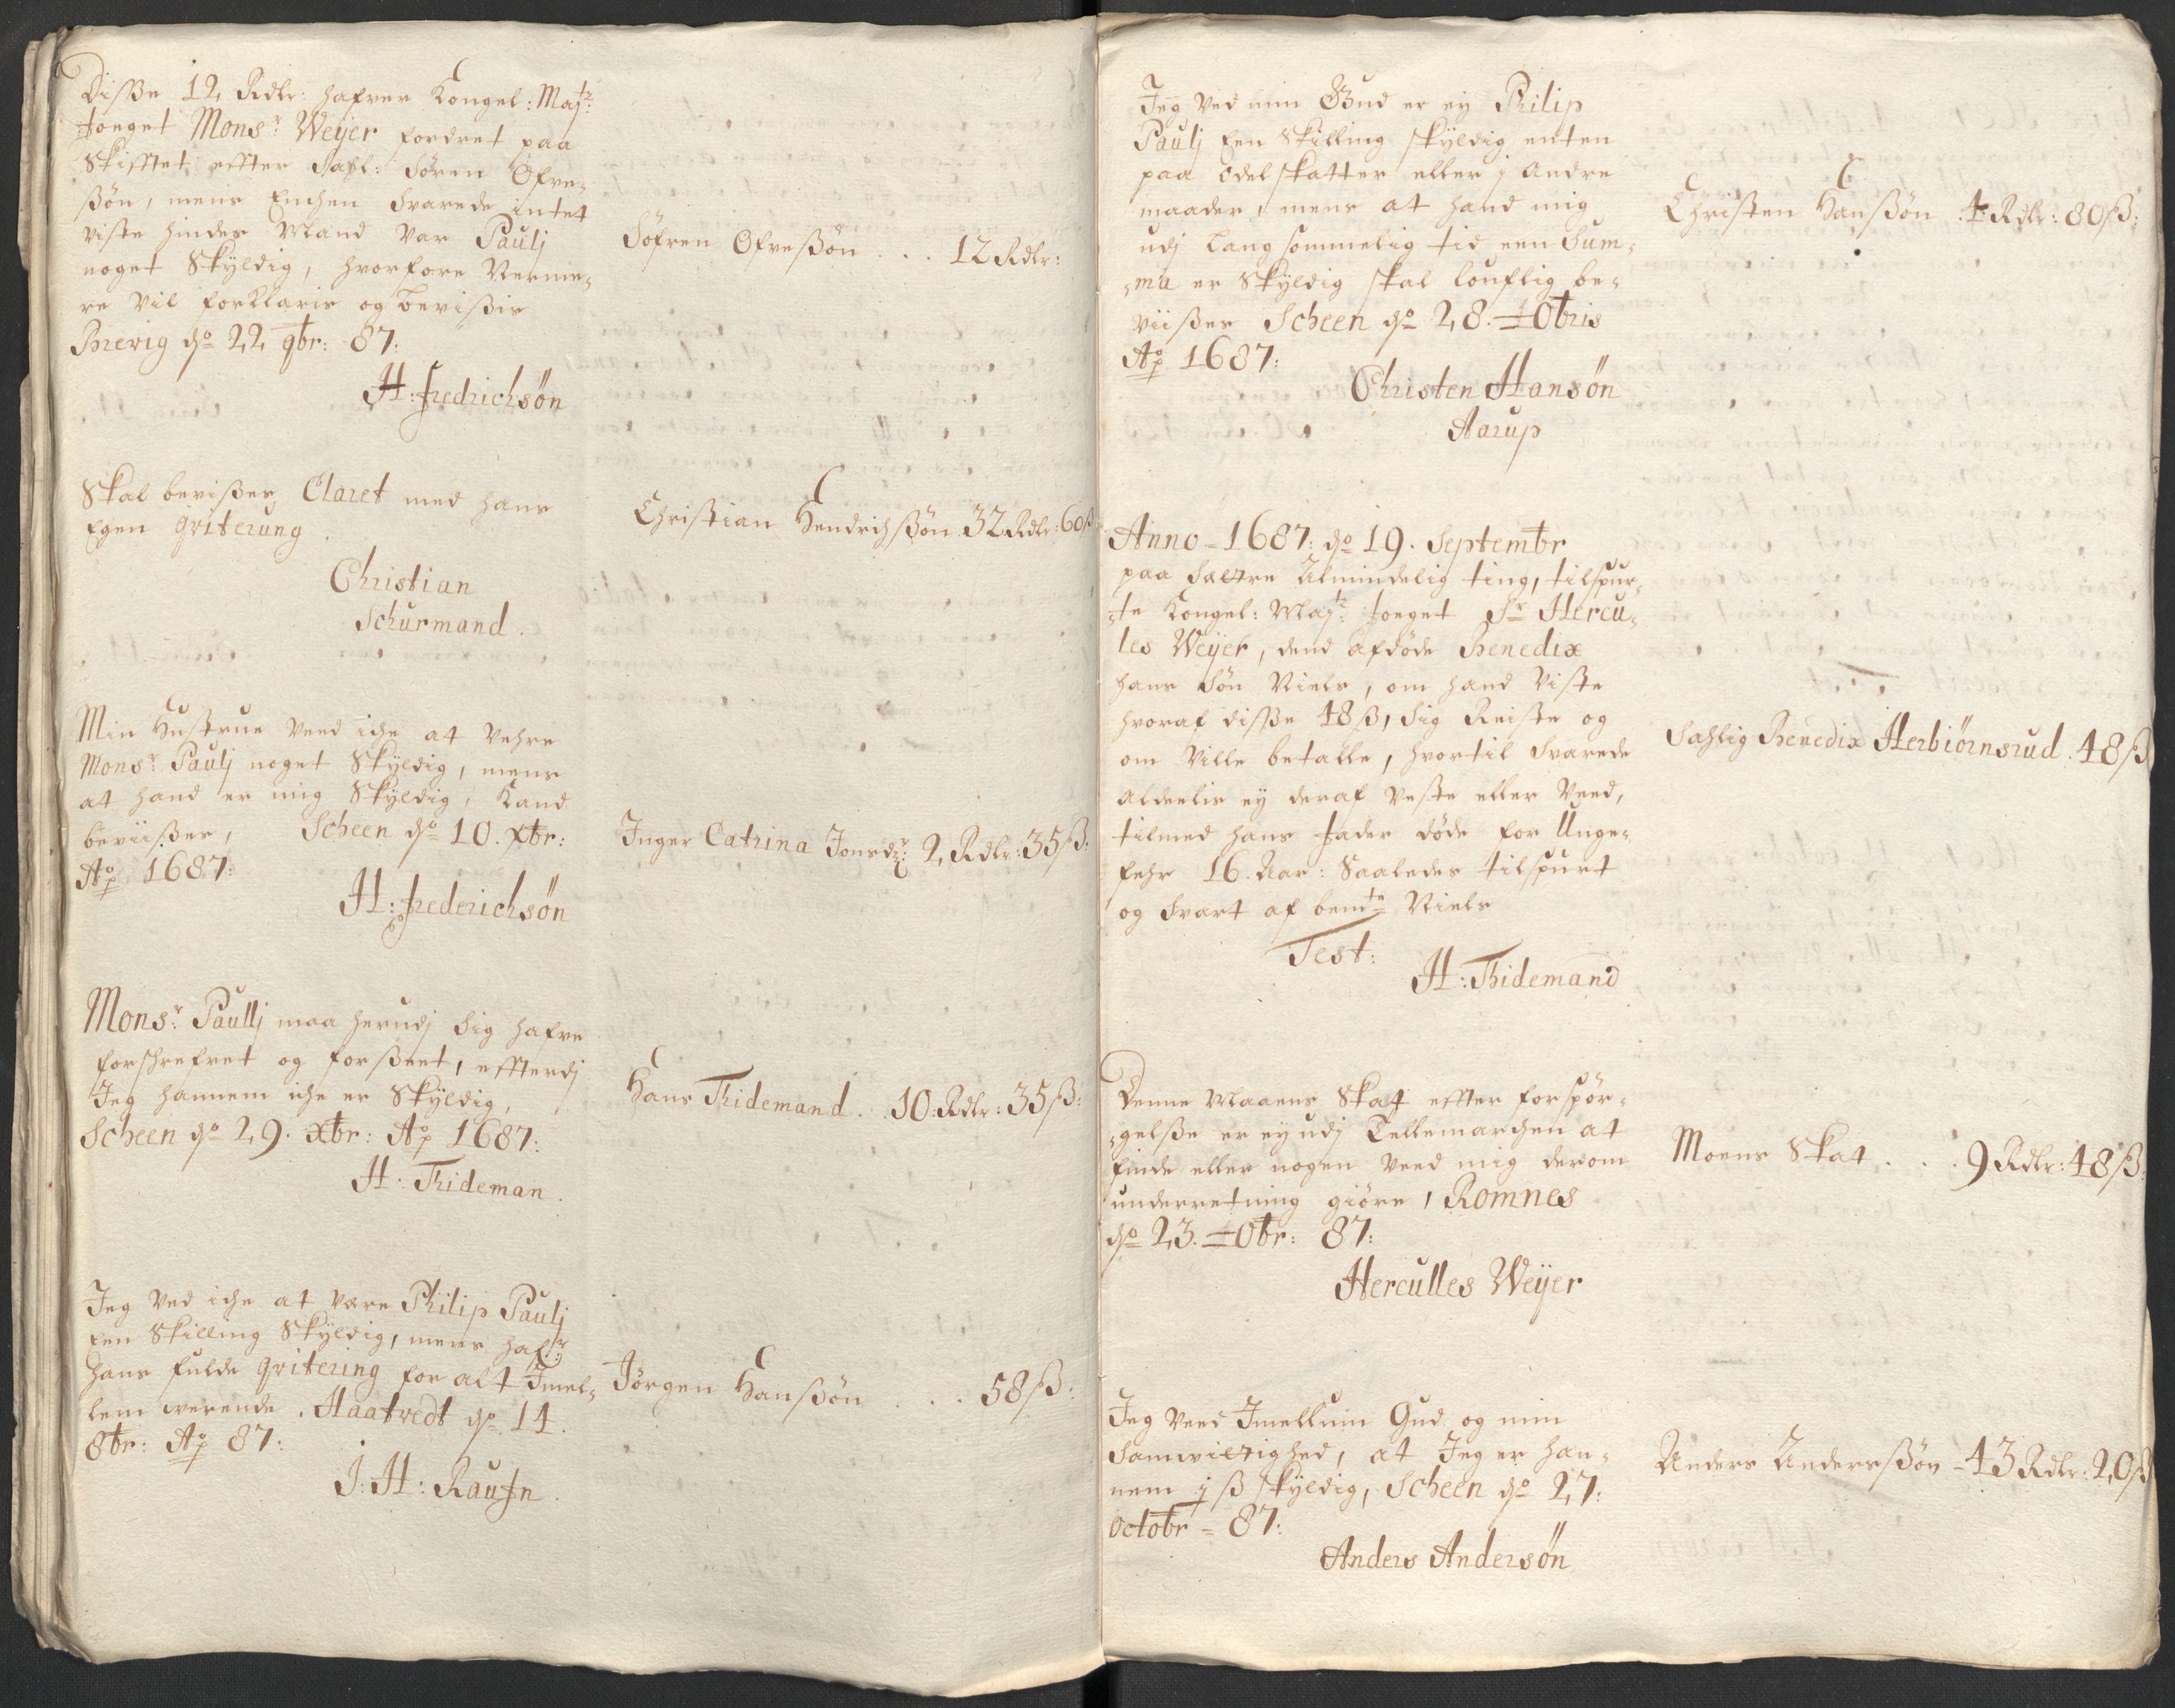 Disse 12 Rdlr: hafver Kongel: Majts:
Foeget Monsr: Weÿer fordret paa
Skifftet effter Sahl: Sören Ofve-
ßön, mens Enchen Svarede intet
viste hindes Mand var Paulj
noget Skÿldig, hvorfore Nerme-
re vil forklaris og bevißis
Brevig do 22 9br: 87:
H: Fredrichsön
Söfren Ofveßön . . . 12 Rdlr:
Skal bevißes Claret med hans
Egen qviterung
Christian
Schurmand.
Christian Hendrichßön 32 Rdlr: 60 ß
Min Hustrue veed iche at vehre
Monsr: Paulj noget Skÿldig, mens
at hand er mig Skÿldig, Kand
beviißes, Scheen do 10. xbr:
Ao 1687:
H: Frederichsön
Inger Catrina Jonsdr: 2 Rdlr: 35 ß:
Monsr: Paullj maa herudj sig hafve
forschrefvet og forßeet, effterdj
Jeg hannem iche er Skÿldig,
Scheen do 29. xbr: Ao 1687:
H: Thideman.
Hans Thidemand . . 10: Rdlr: 35 ß:
Jeg ved iche at være Philip Paulj
Een Skilling Skÿldig, mens hafr:
hans fulde qvitering for alt Imel-
lem werende. Haatvedt do 14.
8br: Ao 87:
J: H: Raufn.
Jörgen Hanßön . . . 58 ß:
Jeg ved min Gud er eÿ Philip
Paulj Een Skilling skÿldig enten
paa Odelskatter eller j andre
maader, mens at hand mig
udj langsommelig tid een Sum-
-ma er Skÿldig skal louflig be-
viißes Scheen do 28. 10bris
Ao 1687:
Christen Hansön
Aarup
Christen Hanßön . 4 Rdlr: 80 ß:
Anno - 1687: do 19. Septembr
paa Saettre Almindelig ting, tilspur-
-te Kongel: Majts: Foeget Sr Hercu-
les Weÿer, dend afdöde Benedix
hans Sön Niels, om hand viste
hvoraf disse 48 ß, sig Reiste og
om ville betalle, hvortil Svarede
aldeelis eÿ deraf veste eller veed,
tilmed hans Fader döde for Unge-
fehr 16. Aar: Saaledes tilspurt
og Svart af bemte Niels
Test:
H: Thidemand
Sahlig Benedix Herbiörnsrud . 48 ß
Denne Moens Skat effter forspör-
-gelße er eÿ udj Tellemarchen at
finde eller nogen veed mig derom
underretning giöre, Romnes
do 23. 10br: 87:
Herculles Weÿer
Moens Skat . . . 9 Rdlr: 48 ß:
Jeg veed Imellum Gud og min
Samvittighed, at Jeg er han-
nem j ß skÿldig, Scheen do 27:
Octobr - 87:
Anders Andersön
Anders Andersßön - 43 Rdlr: 20 ß